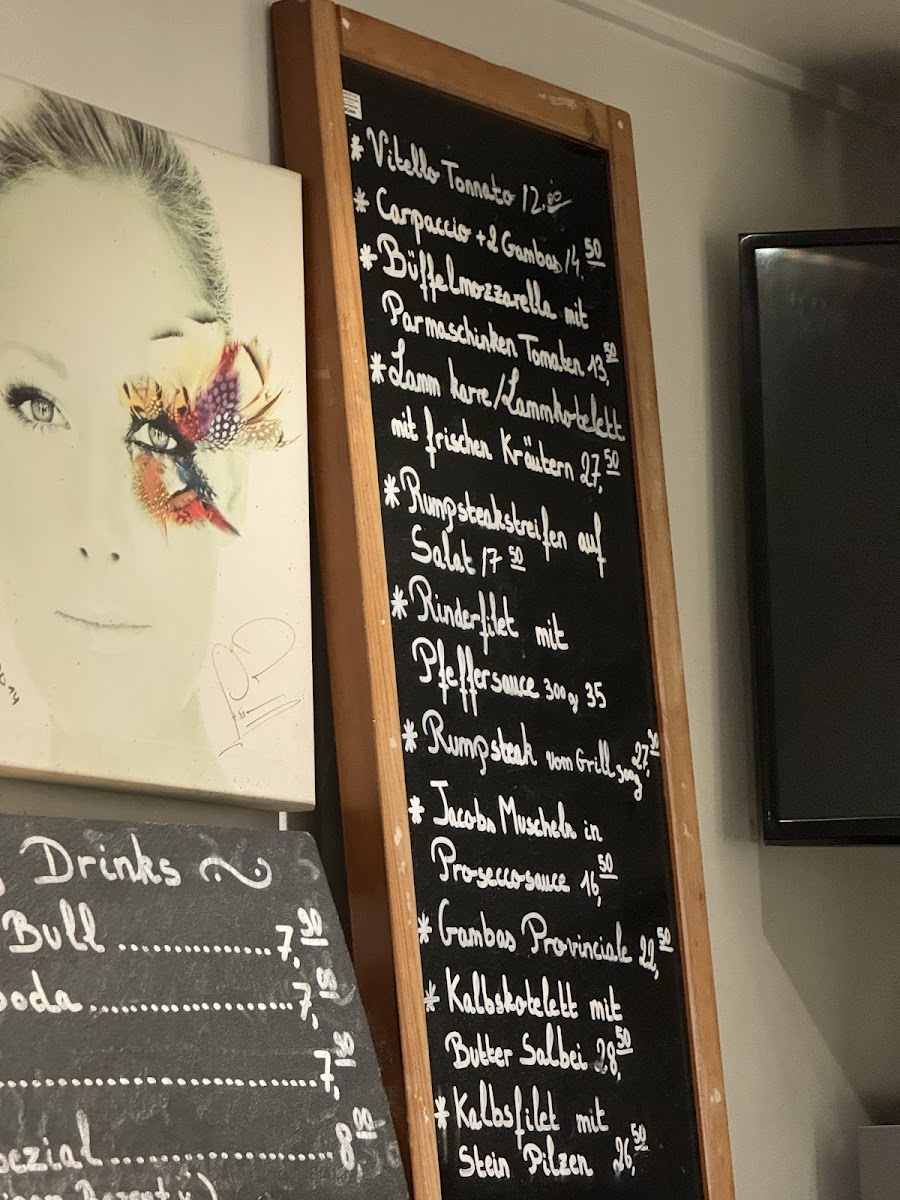 * Vitello Tonnato 12.00
* Carpaccio + 2 Gambas 14,50
* Büffelmozzarella mit
Parmaschinken Tomaten 13,50
* Lamm karre/Lammkotelett
mit frischen Kräutern 27,50
* Rumpsteakstreifen auf
Salat 17 50
* Rinderfilet mit
Pfeffersauce 300g 35
* Rumpsteak vom Grill 300g 27,50
* Jacobs Muscheln in
Proseccosauce 16,50
* Gambas Provinciale 22,50
* Kalbskotelett mit
Butter Salbei 28,50
* Kalbsfilet mit
Stein Pilzen 26,50
Drinks
Bull ............. 7,90
................ 7,
................ 7,90
................ 8,00